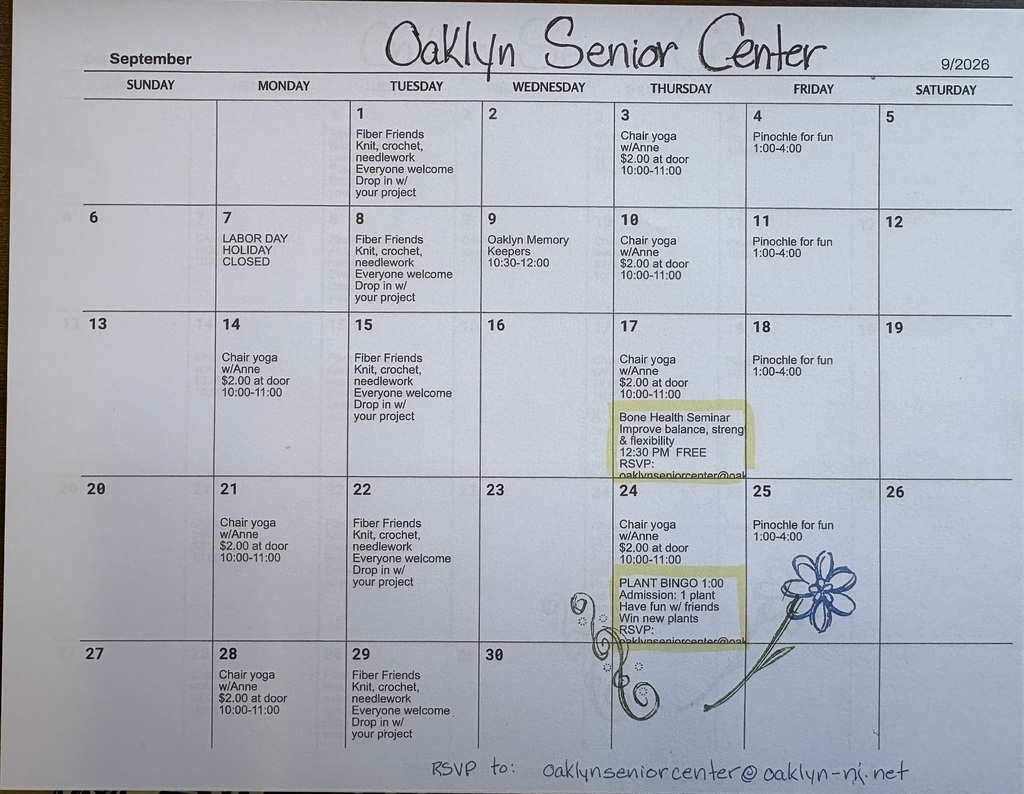 Oaklyn Senior Center
September
9/2026
SUNDAY MONDAY TUESDAY WEDNESDAY THURSDAY FRIDAY SATURDAY
1
Fiber Friends
Knit, crochet,
needlework
Everyone welcome
Drop in w/
your project
2
3
Chair yoga
w/Anne
$2.00 at door
10:00-11:00
4
Pinochle for fun
1:00-4:00
5
6
7
LABOR DAY
HOLIDAY
CLOSED
8
Fiber Friends
Knit, crochet,
needlework
Everyone welcome
Drop in w/
your project
9
Oaklyn Memory
Keepers
10:30-12:00
10
Chair yoga
w/Anne
$2.00 at door
10:00-11:00
11
Pinochle for fun
1:00-4:00
12
13
14
Chair yoga
w/Anne
$2.00 at door
10:00-11:00
15
Fiber Friends
Knit, crochet,
needlework
Everyone welcome
Drop in w/
your project
16
17
Chair yoga
w/Anne
$2.00 at door
10:00-11:00
Bone Health Seminar
Improve balance, streng
& flexibility
12:30 PM FREE
RSVP:
oaklynseniorcenter@oak
18
Pinochle for fun
1:00-4:00
19
20
21
Chair yoga
w/Anne
$2.00 at door
10:00-11:00
22
Fiber Friends
Knit, crochet,
needlework
Everyone welcome
Drop in w/
your project
23
24
Chair yoga
w/Anne
$2.00 at door
10:00-11:00
PLANT BINGO 1:00
Admission: 1 plant
Have fun w/ friends
Win new plants
RSVP:
oaklynseniorcenter@oak
25
Pinochle for fun
1:00-4:00
26
27
28
Chair yoga
w/Anne
$2.00 at door
10:00-11:00
29
Fiber Friends
Knit, crochet,
needlework
Everyone welcome
Drop in w/
your project
30
RSVP to: oaklynseniorcenter@oaklyn-nj.net